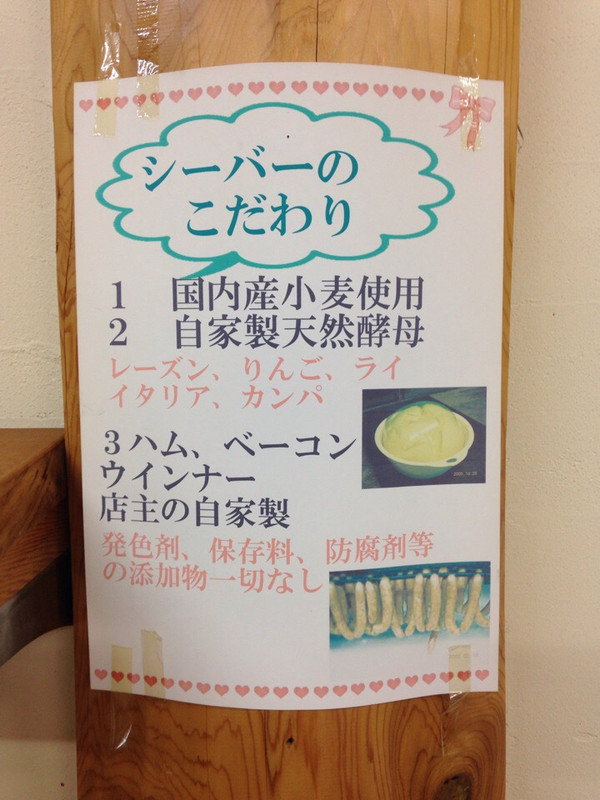 シーバーの
こだわり
1 国内産小麦使用
2 自家製天然酵母
レーズン、りんご、ライ
イタリア、カンパ
3ハム、ベーコン
ウインナー
店主の自家製
発色剤、保存料、防腐剤等
の添加物一切なし